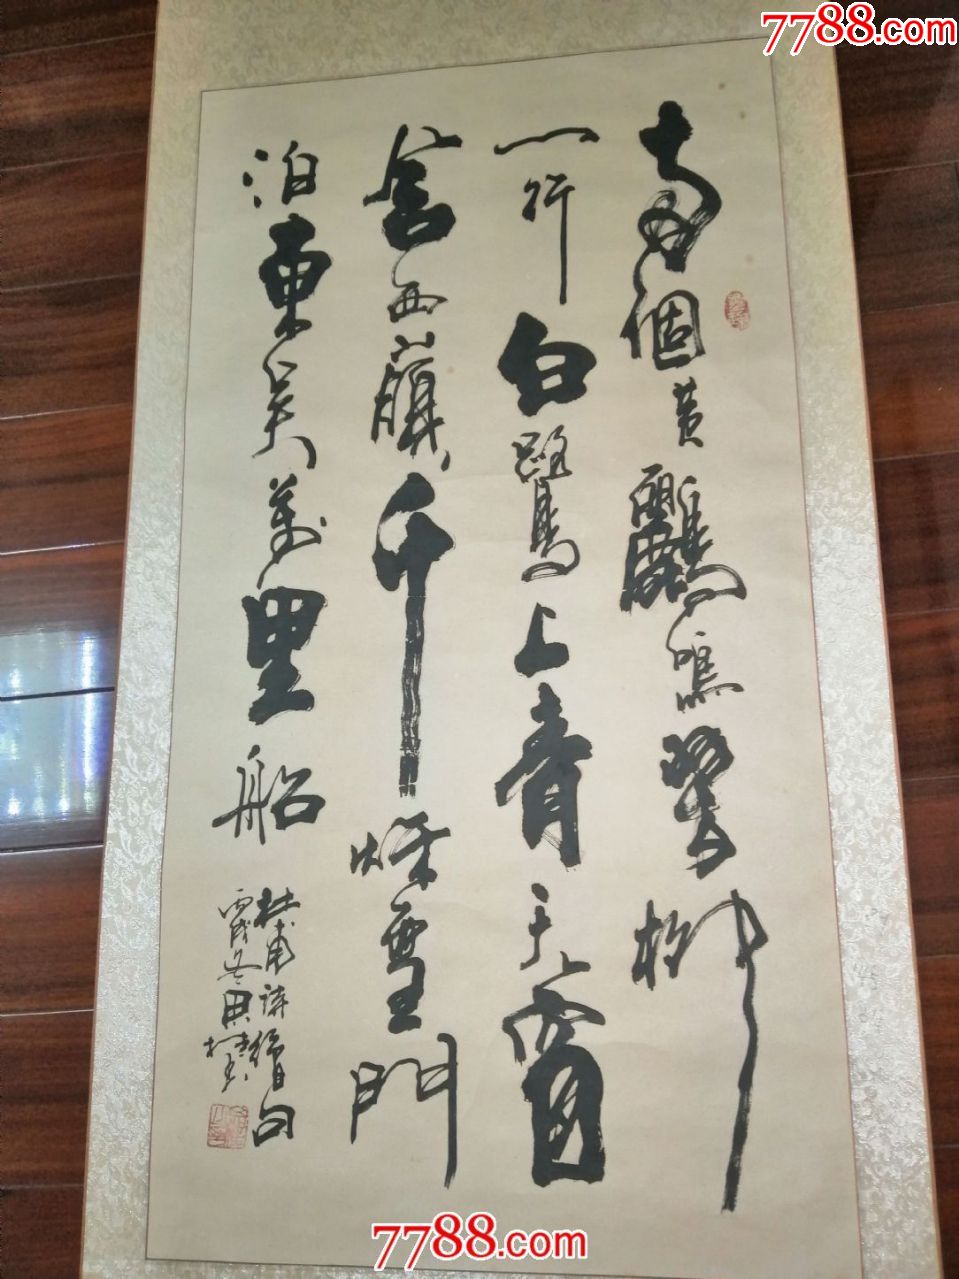 7788.com
两個黄鸝鳴翠柳
一行白鷺上青天窗
含西嶺千秋雪門
泊東吴萬里船
杜甫詩絶句
丙戌冬
7788.com